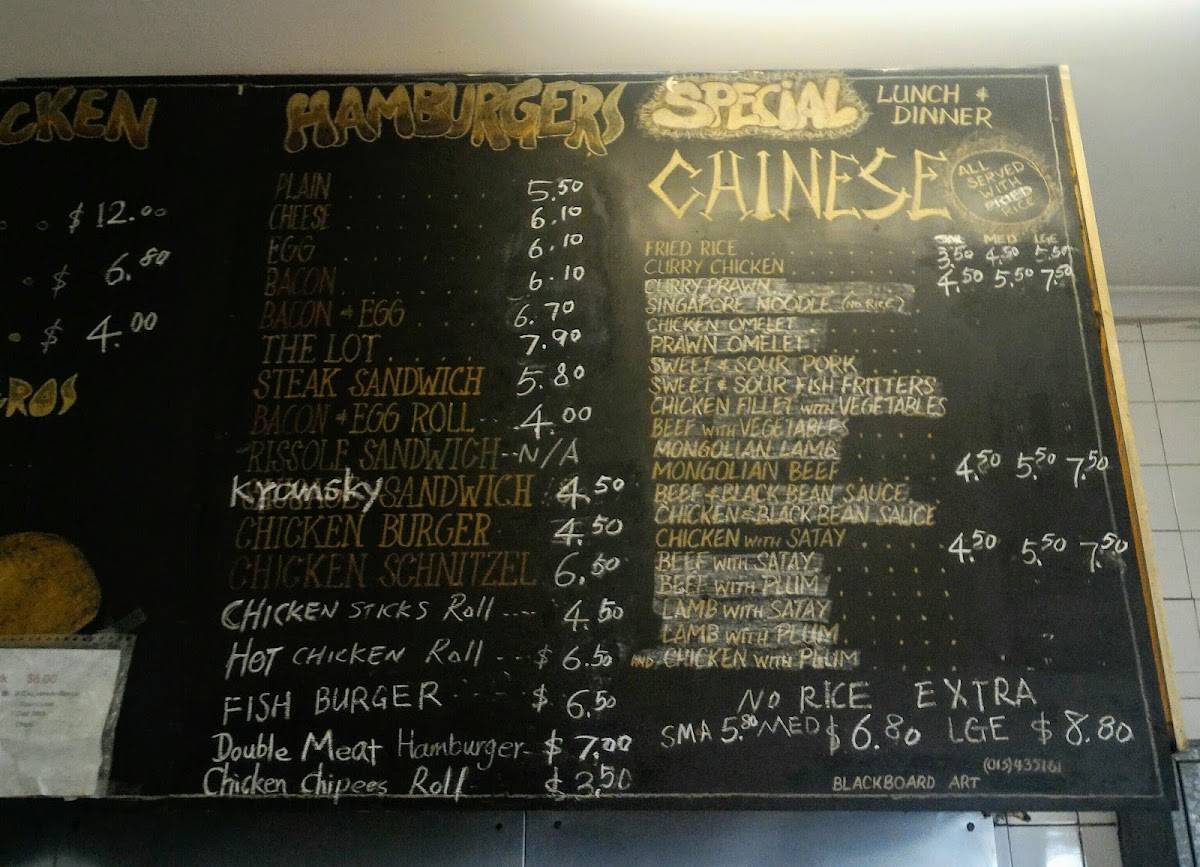 CKEN
$12.00
$ 6.80
$ 4.00
ROS
$6.00
HAMBURGERS
PLAIN 5.50
CHEESE 6.10
EGG 6.10
BACON 6.10
BACON & EGG 6.70
THE LOT 7.90
STEAK SANDWICH 5.80
BACON & EGG ROLL 4.00
RISSOLE SANDWICH--N/A
Kransky SANDWICH 4.50
CHICKEN BURGER 4.50
CHICKEN SCHNITZEL 6.50
CHICKEN STICKS Roll .... 4.50
HOT CHICKEN Roll --- $ 6.50
FISH BURGER $ 6.50
Double Meat Hamburger- $ 7.00
Chicken Chipees Roll $ 3.50
SPECIAL LUNCH & DINNER
CHINESE
ALL
SERVED
WITH
FRIED
RICE
SML MED LGE
FRIED RICE 3.50 4.50 5.50
CURRY CHICKEN 4.50 5.50 7.50
CURRY PRAWN
SINGAPORE NOODLE (NO RICE)
CHICKEN OMELET
PRAWN OMELET
SWEET & SOUR PORK
SWEET & SOUR FISH FRITTERS
CHICKEN FILLET WITH VEGETABLES
BEEF WITH VEGETABLES
MONGOLIAN LAMB
MONGOLIAN BEEF 4.50 5.50 7.50
BEEF & BLACK BEAN SAUCE
CHICKEN & BLACK BEAN SAUCE
CHICKEN WITH SATAY 4.50 5.50 7.50
BEEF WITH SATAY
BEEF WITH PLUM
LAMB WITH SATAY
LAMB WITH PLUM
AND CHICKEN WITH PLUM
NO RICE EXTRA
SMA 5.80 MED $6.80 LGE $8.80
BLACKBOARD ART